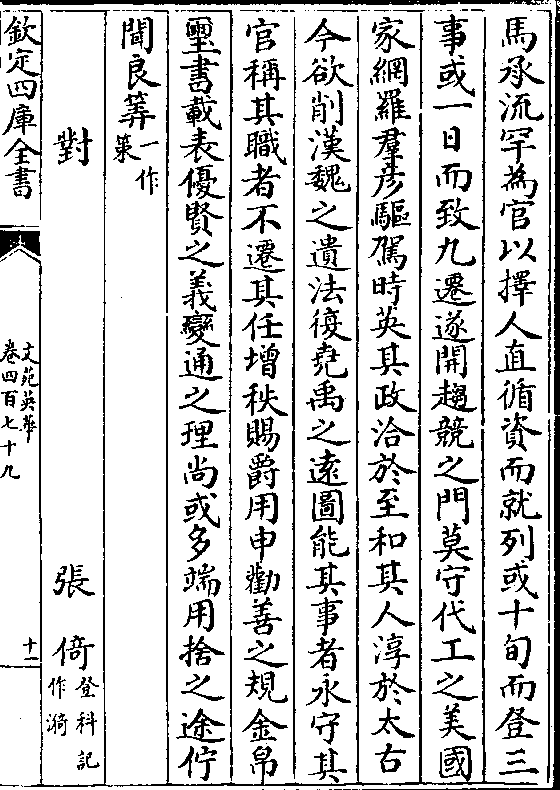 馬承流罕為官以擇人直循資而就列或十旬而登三
事或一日而致九遷遂開趨競之門莫守代工之美國
家網羅羣彦驅駕時英其政洽於至和其人淳於太古
今欲削漢魏之遺法復堯禹之遠圖能其事者永守其
官稱其職者不遷其任增秩賜爵用申勸善之規金帛
璽書載表優賢之義變通之理尚或多端用捨之途佇
聞良筭一作策
對 張倚登科記作漪
欽定四庫全書
文苑英華
卷四百七十九
十一